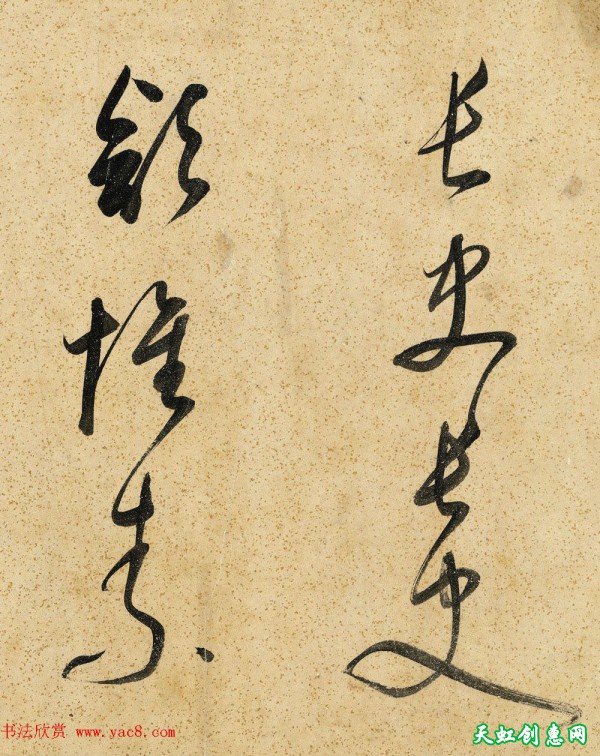 长史长史
素
书法欣赏 www.yac8.com
天虹创惠网